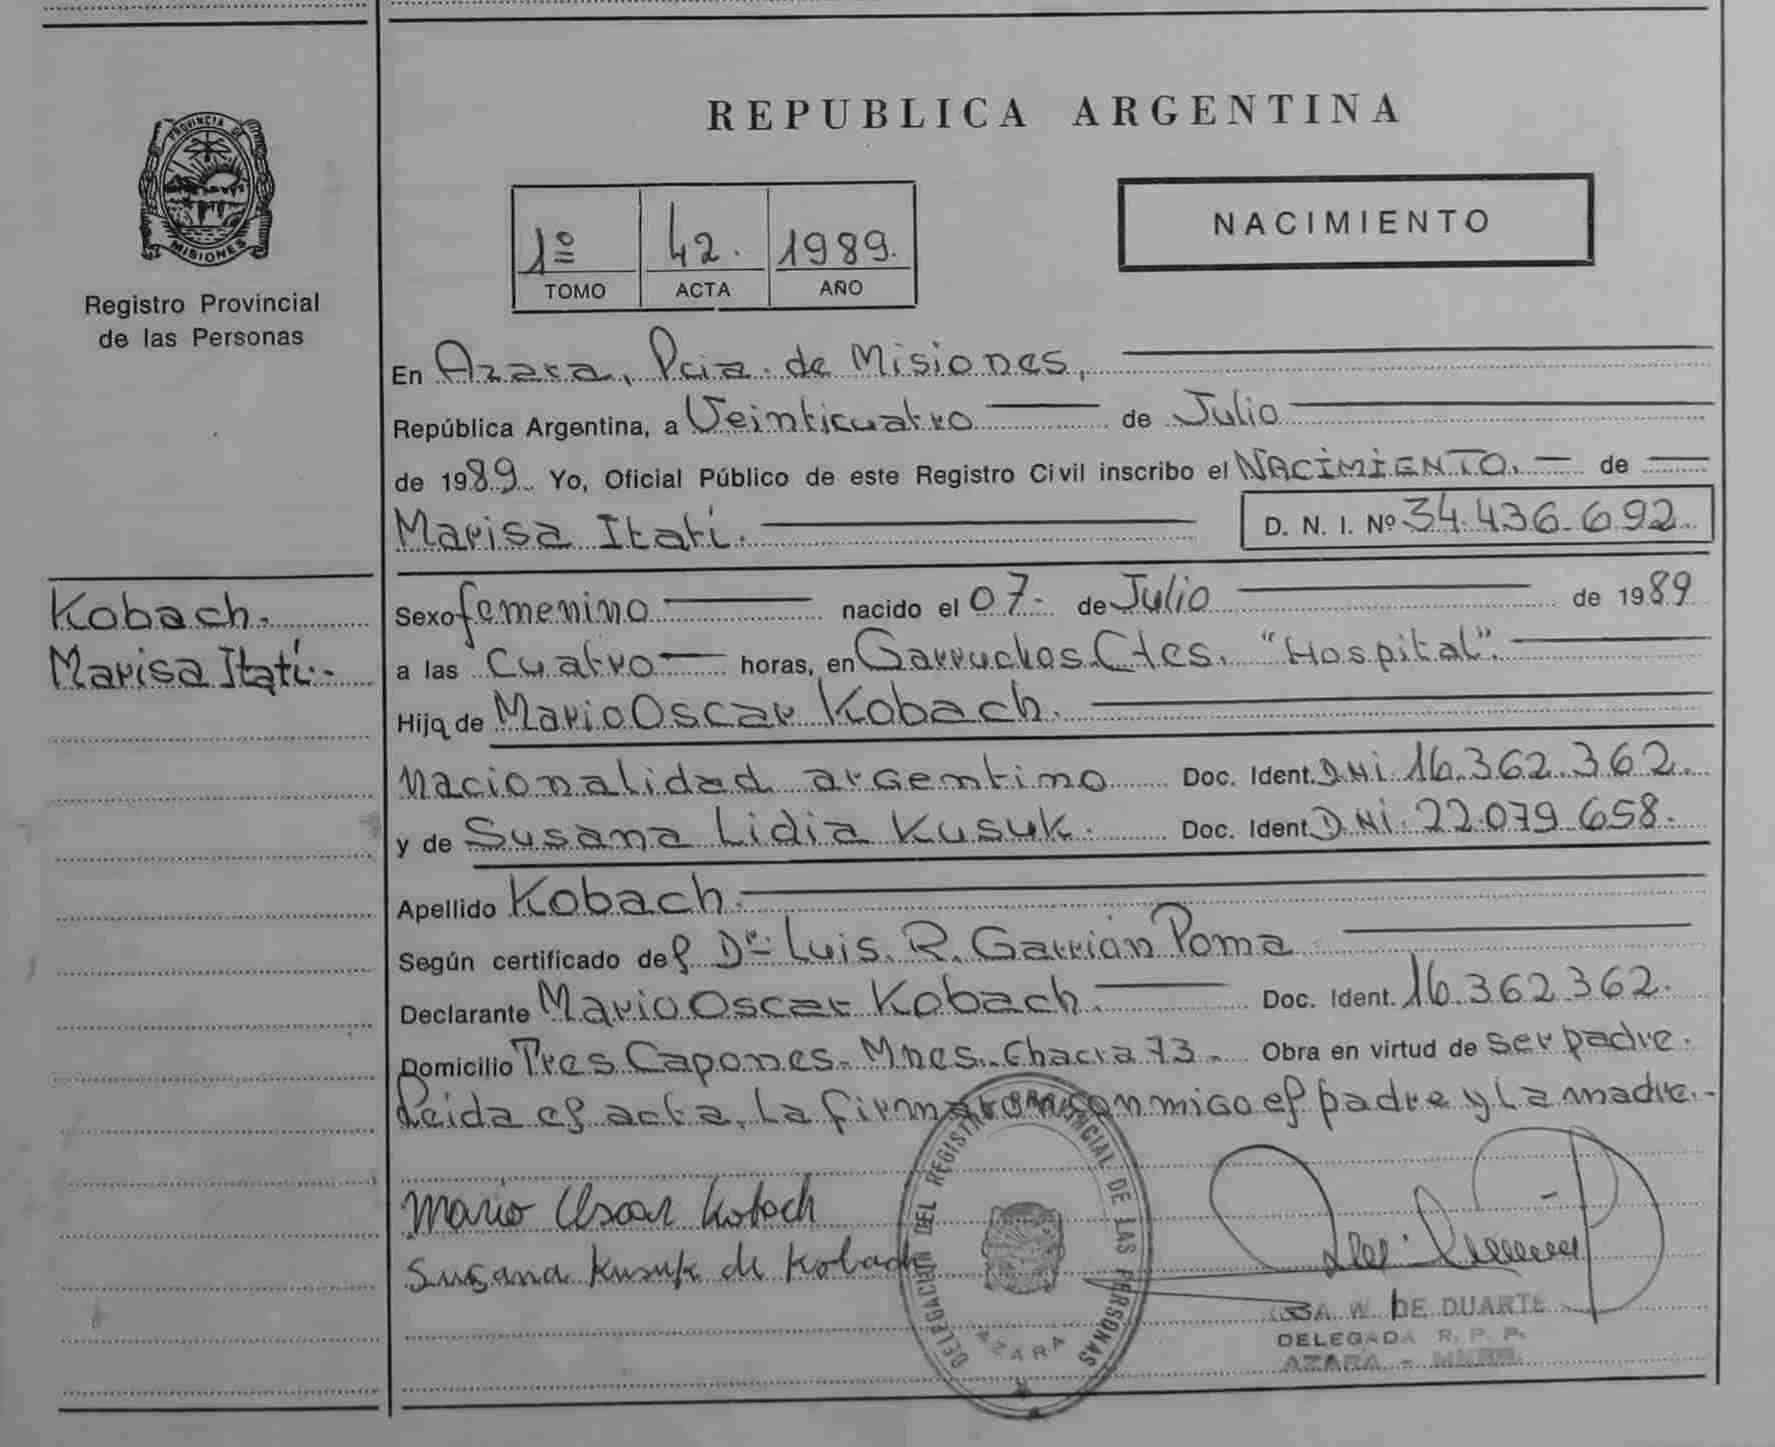 PROVINCIA DE
MISIONES
Registro Provincial
de las Personas
REPUBLICA ARGENTINA
1º 42. 1989.
TOMO ACTA AÑO
NACIMIENTO
En Azara, Pcia. de Misiones,
República Argentina, a Veinticuatro de Julio
de 1989. Yo, Oficial Público de este Registro Civil inscribo el NACIMIENTO. de
Marisa Itatí. D. N. I. Nº 34.436.692.
Kobach.
Marisa Itatí.-
Sexo femenino nacido el 07. de Julio de 1989
a las cuatro horas, en Garruchos Ctes. "Hospital".
Hija de Mario Oscar Kobach.
Nacionalidad argentino Doc. Ident. DNI 16.362.362.
y de Susana Lidia Kusuk. Doc. Ident. DNI. 22.079.658.
Apellido Kobach.
Según certificado del Dr. Luis. R. Garrián Poma
Declarante Mario Oscar Kobach. Doc. Ident. 16.362.362.
Domicilio Tres Capones.- Mnes.- Chacra 73.- Obra en virtud de ser padre.
Leida el acta, la firmaron conmigo el padre y la madre.-
Mario Oscar Kobach
Susana Kusuk de Kobach
DELEGACION DEL REGISTRO PROVINCIAL DE LAS PERSONAS
AZARA
W. DE DUARTE
DELEGADA R. P. P.
AZARA -